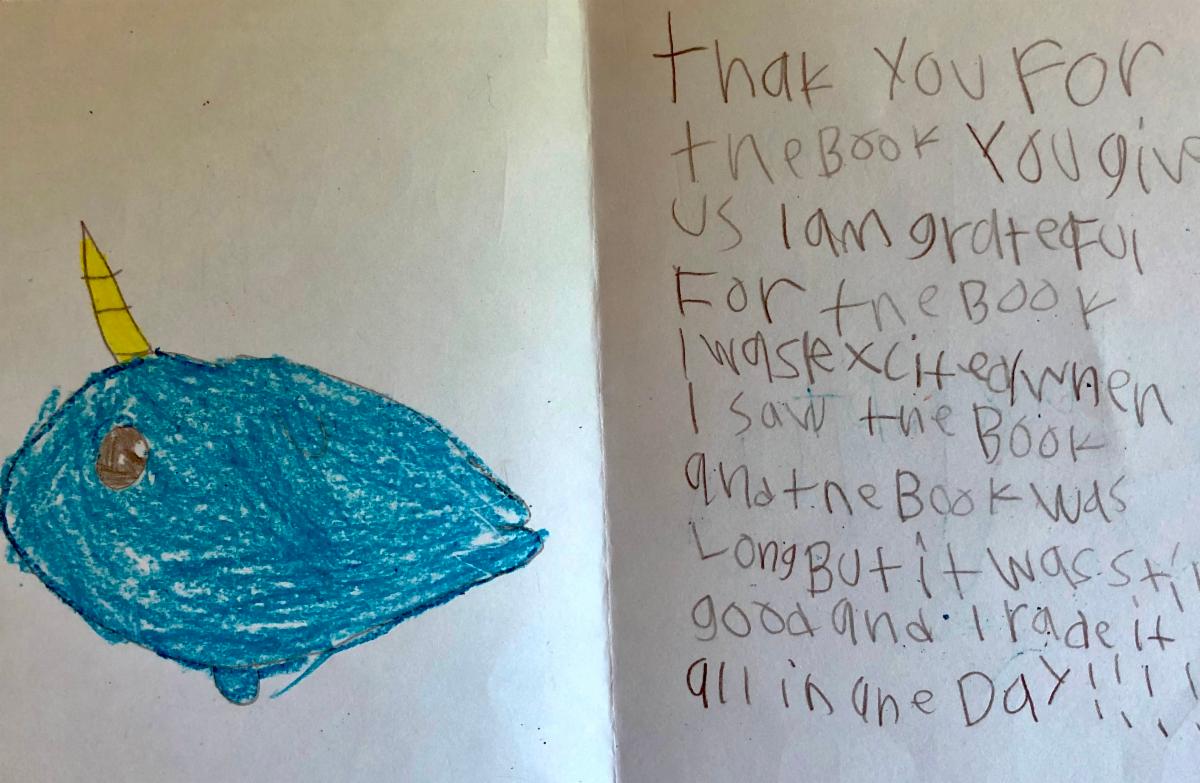 thak You For
the Book You give
us I am grateful
For the Book
I was excited when
I saw the Book
and the Book was
Long But it was sti
good and I rade it
all in one Day!!!!